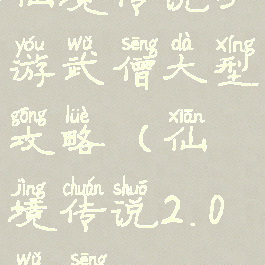 仙境传说
yóu wǔ sēng dà xíng
游武僧大型
gōng lüè xiān
攻略（仙
jìng chuán shuō
境传说2.0
wǔ sēng